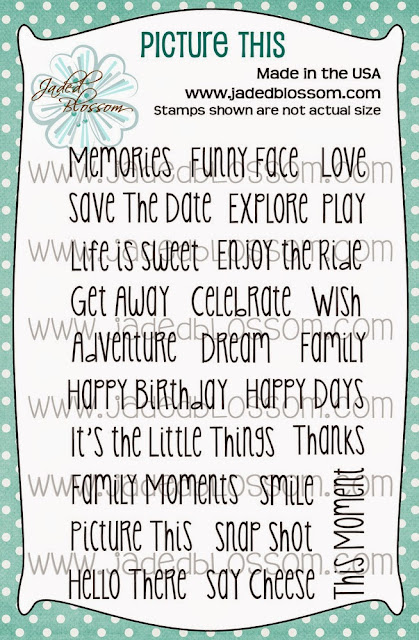 Picture This
Jaded Blossom
Made in the USA
www.jadedblossom.com
Stamps shown are not actual size
Memories Funny Face Love
www.jadedblossom.com
Save The Date Explore Play
Life is Sweet Enjoy the Ride
www.jadedblossom.com
Get Away Celebrate Wish
www.jadedblossom.com
Adventure Dream Family
Happy Birthday Happy Days
www.jadedblossom.com
It's the Little Things Thanks
Family Moments Smile
www.jadedblossom.com
Picture This Snap Shot
www.jadedblossom.com
Hello There Say Cheese
This Moment